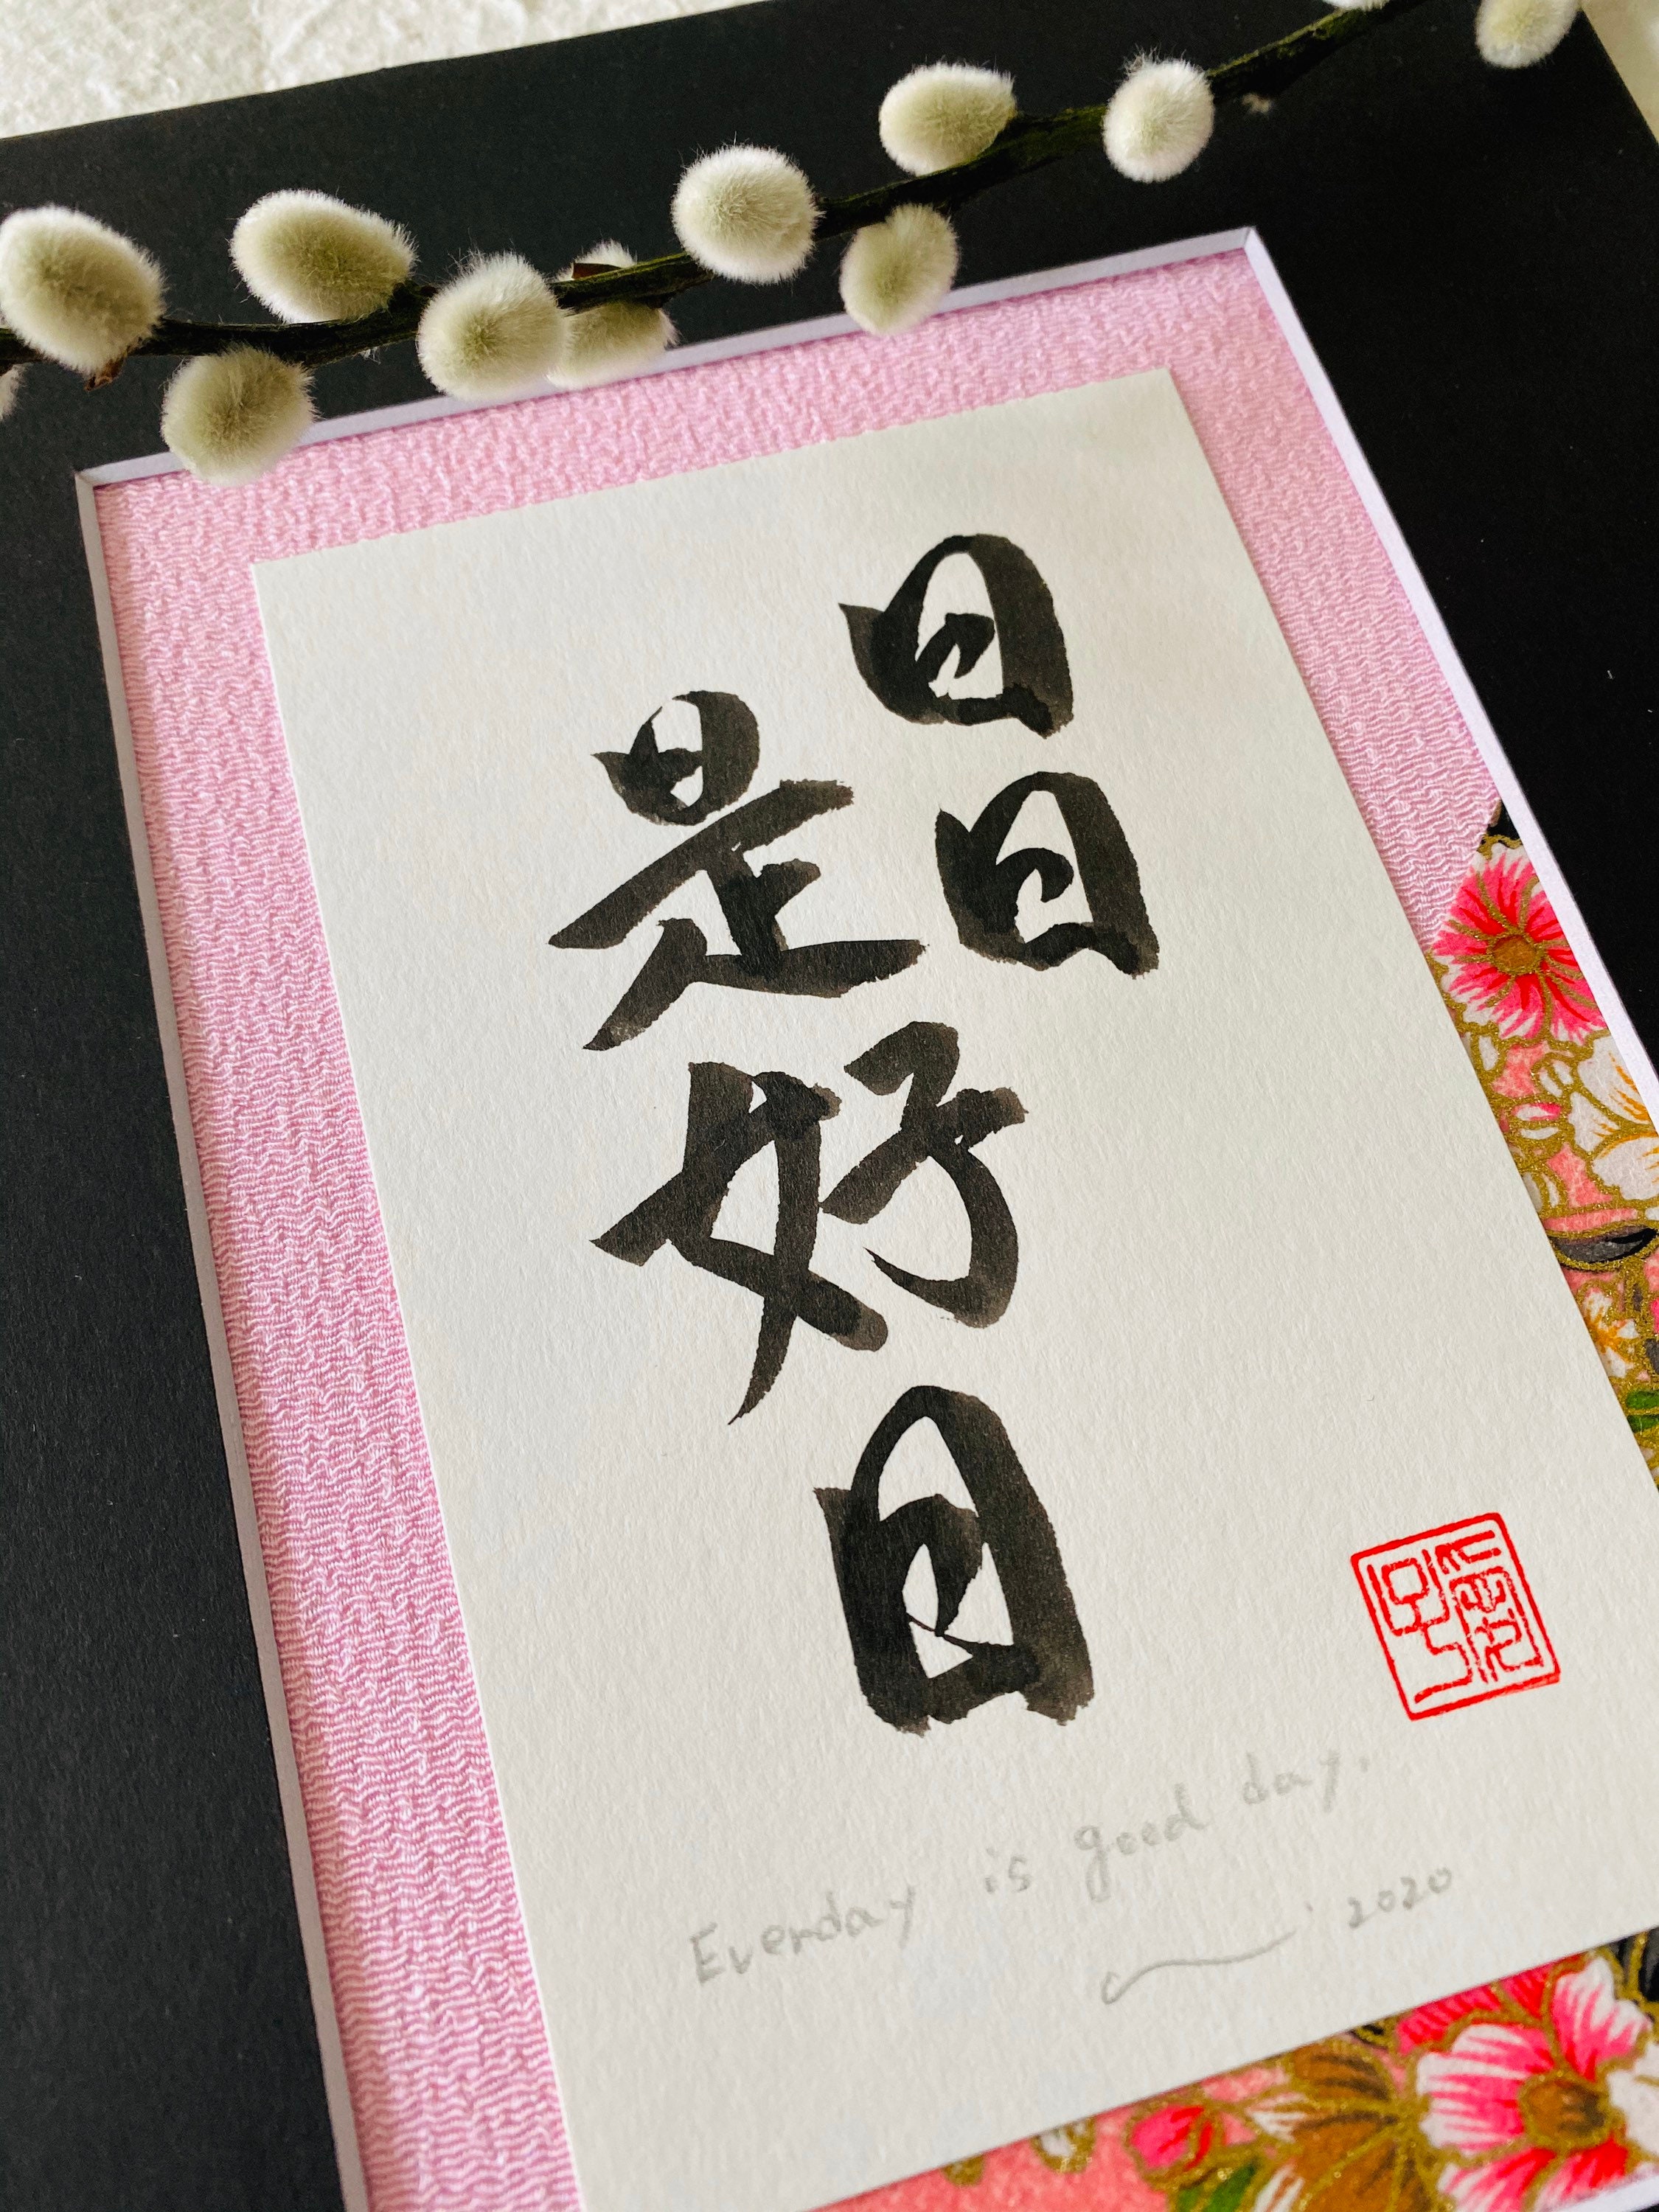 日日
是好日
Everday is good day.
2020